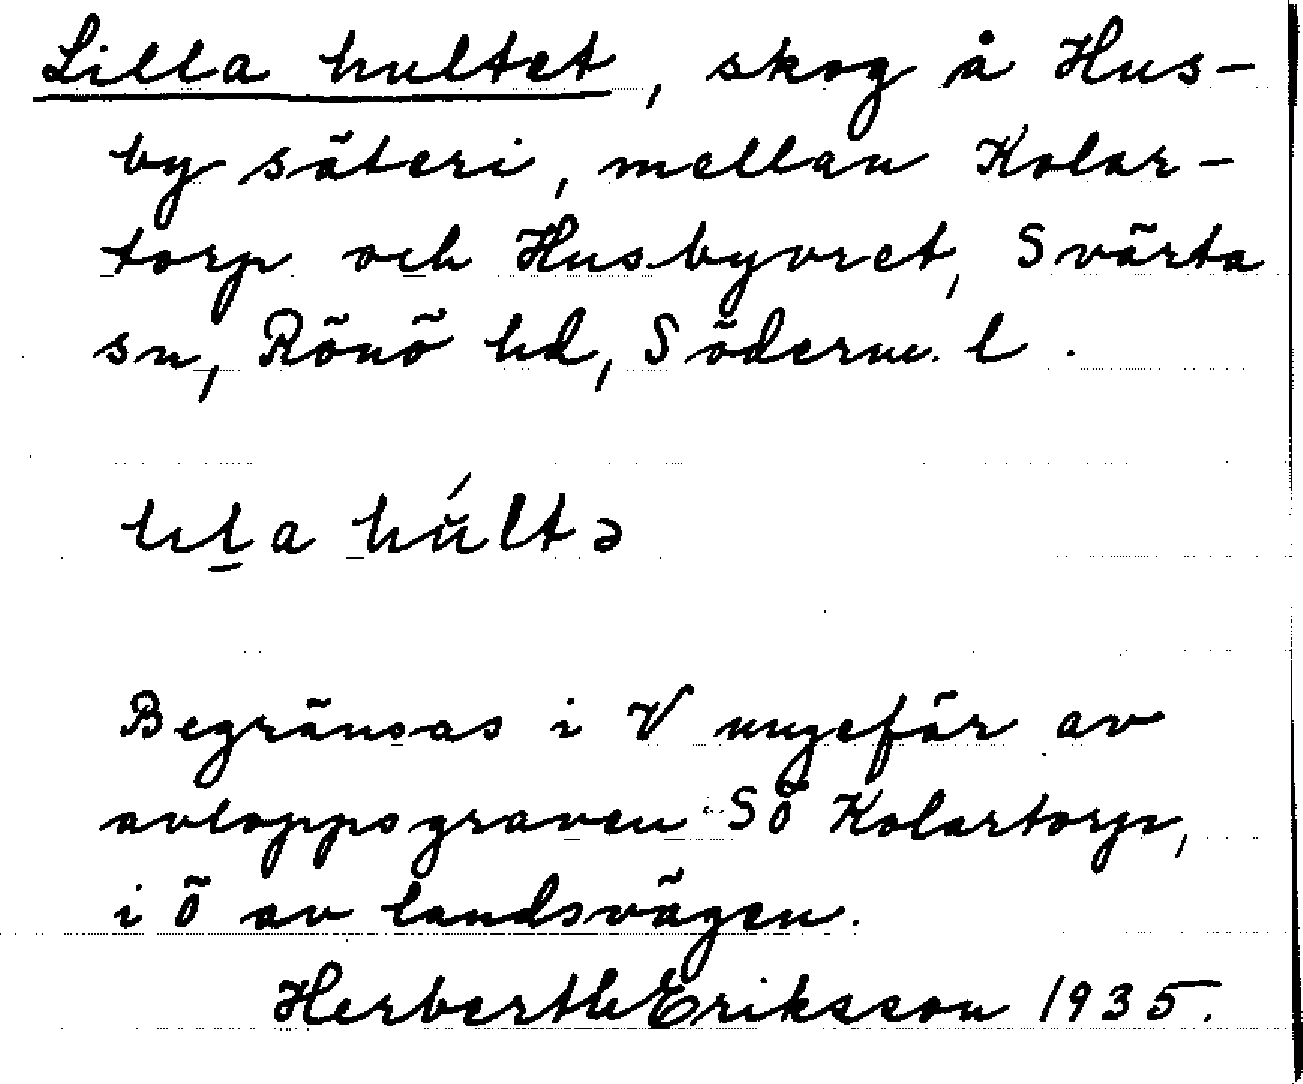 Lilla hultet, skog å Hus-
by säteri, mellan Kolar-
torp och Husbyvret, Svärta
sn, Rönö hd, Söderm. l.
húltə
Begränsas i V ungefär av
avloppsgraven SÖ Kolartorp,
i Ö av landsvägen.
Herberth Eriksson 1935.